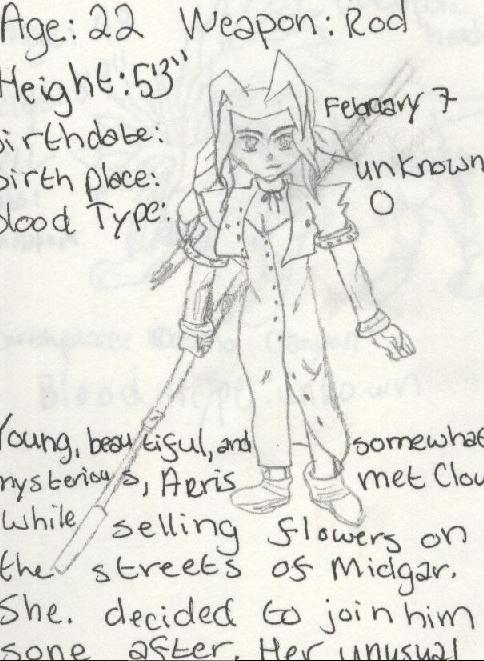 Age: 22 Weapon: Rod
Height: 5'3"
Birthdate: February 7
Birth place: unknown
Blood Type: O
Young, beautiful, and somewhat
mysterious, Aeris met Clou
while selling flowers on
the streets of Midgar.
She. decided to join him
sone after. Her unusual